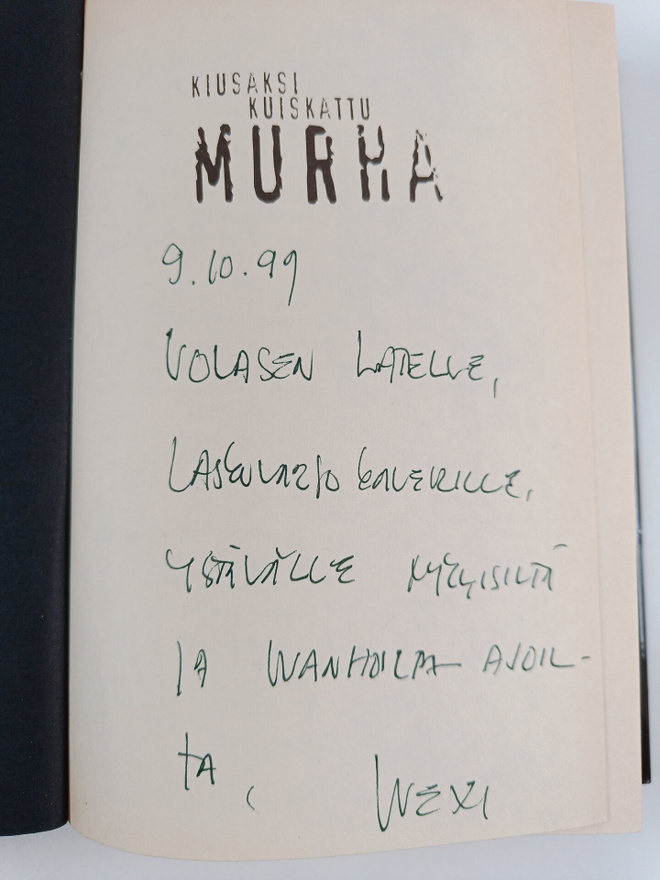 KIUSAKSI
KUISKATTU
MURHA
9.10.99
VOLASEN LATELLE,
KAVERILLE,
YSTÄVÄLLE NYKYISILTÄ
JA WANHOILTA AJOIL-
TA,
WEXI